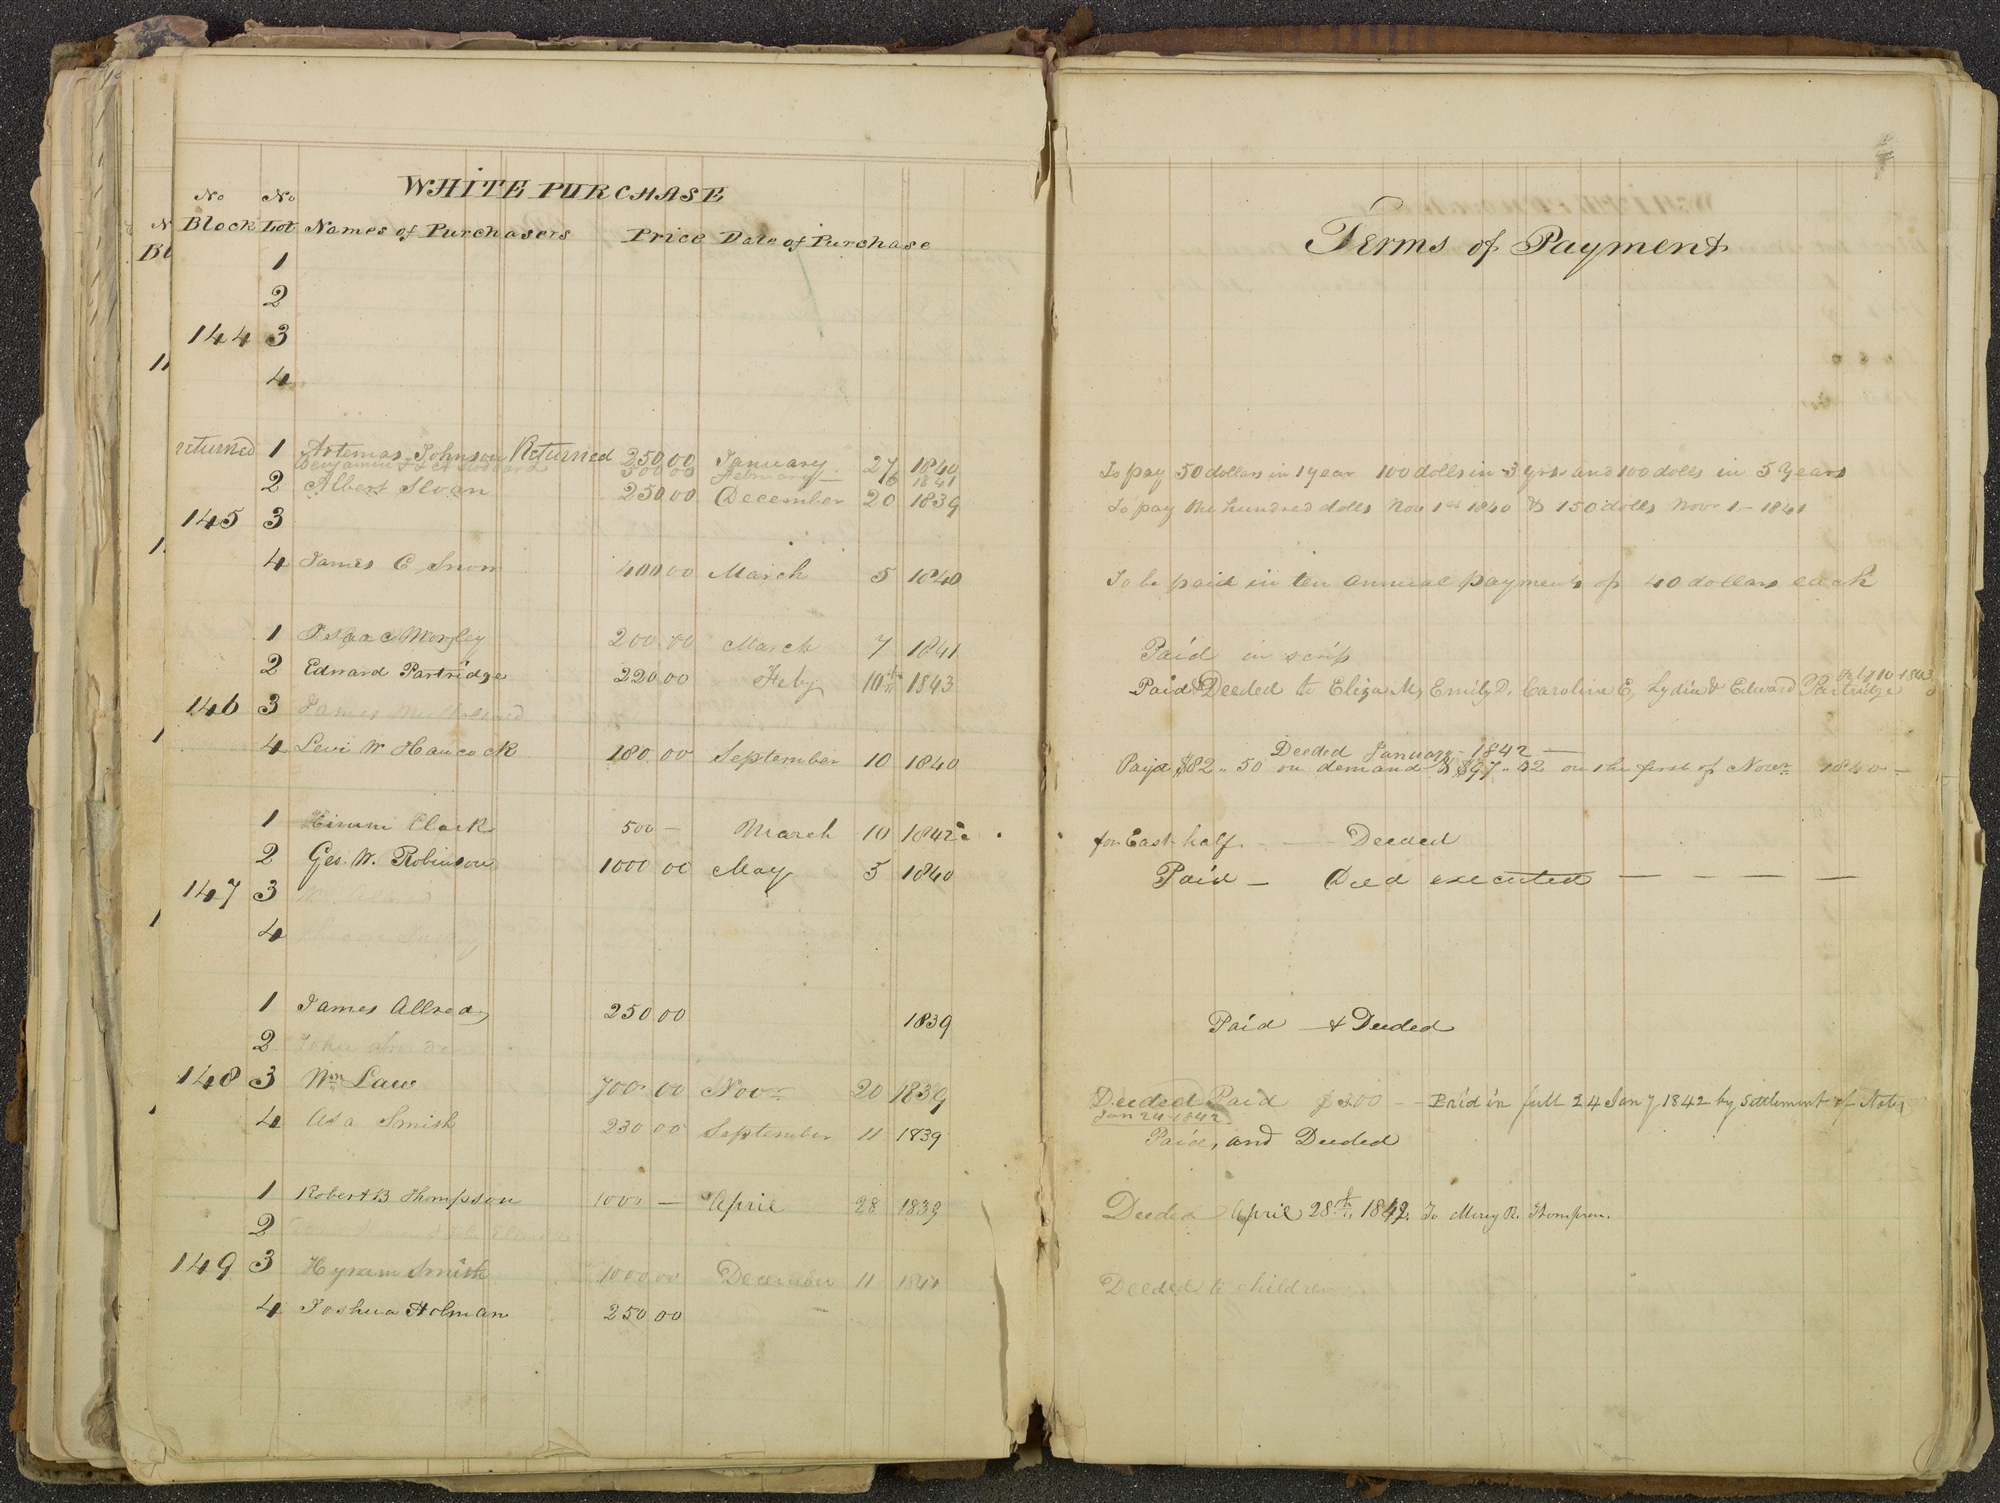 WHITE PURCHASE
No No
Block Lot Names of Purchasers Price Date of Purchase
1
2
144 3
4
returned 1 Artemas Johnson Returned 250.00 January 27 1840
Benjamin 500.00 February 1841
2 Albert Sloan 250.00 December 20 1839
145 3
4 James C Snow 400.00 March 5 1840
1 Isaac Morley 200.00 March 7 1841
2 Edward Partridge 220.00 Feby 10th 1843
146 3 James
4 Levi W Hancock 180.00 September 10 1840
1 Hiram Clark 500 — March 10 1842
2 Geo. W. Robinson 1000 00 May 5 1840
147 3
4
1 James Allred 250 00 1839
2 John
148 3 Wm Law 700 00 Novr 20 1839
4 Asa Smith 230 00 September 11 1839
1 Robert B Thompson 1000 — April 28 1839
2
149 3 Hyrum Smith 1000.00 December 11 1841
4 Joshua Holman 250 00
Terms of Payment
To pay 50 dollars in 1 year 100 dolls in 3 yrs and 100 dolls in 5 Years
To pay One hundred dolls Nov 1st 1840 & 150 dolls Novr 1 – 1841
To be paid in ten annual payments of 40 dollars each
Paid in scrip
Feby 10 1843
Paid & Deeded to Eliza M, Emily D, Caroline E, Lydia & Edward Partridge
Deeded January – 1842 —
Payd $82 .. 50 on demand & $97 .. 42 on the first of Novr 1840 —
for East half — Deeded
Paid — Deed executed — — — —
Paid — & Deeded
Deeded Paid $200 — Paid in full 24 Jany 1842 by settlement of Note
Jan 24 1842
Paid, and Deeded
Deeded April 28th 1842. To Mercy R. Thompson.
Deeded to children